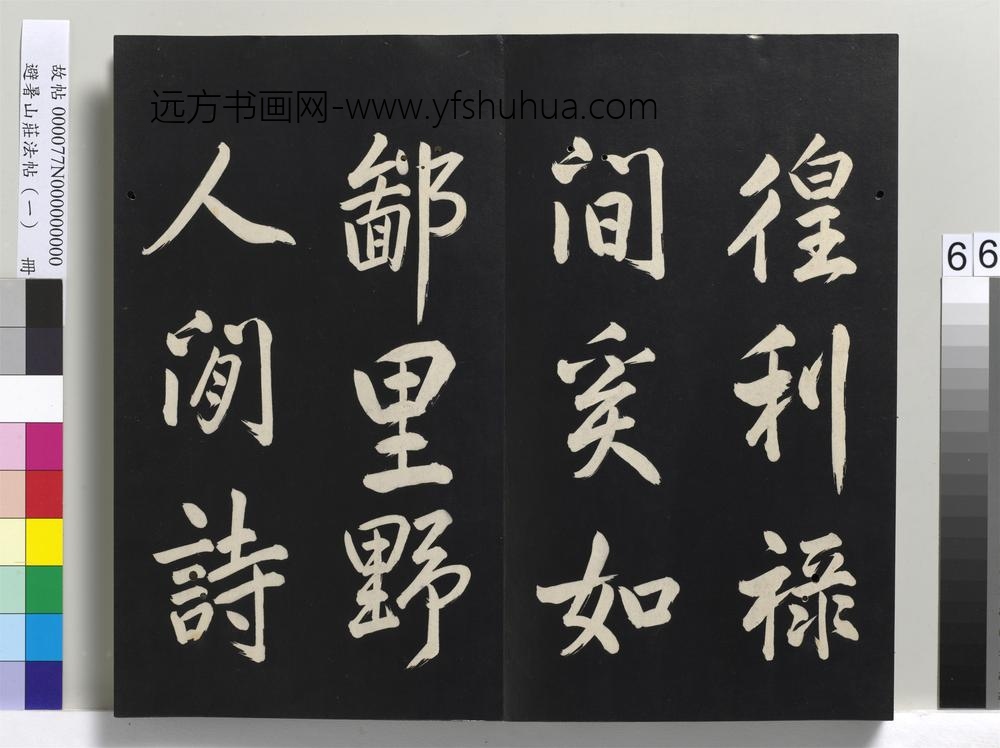 徨利祿
間奚如
鄙里野
人閒詩
远方书画网-www.yfshuhua.com
故帖 000077N000000000
避暑山莊法帖（一） 冊
6
6